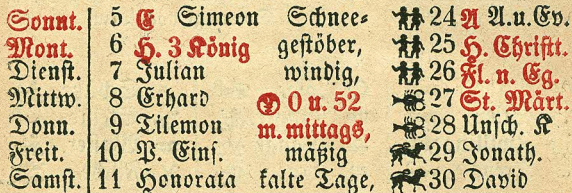 Sonnt. 5 E Simeon Schnee- 24 A A.u.Ev.
Mont. 6 H. 3 König gestöber, 25 H. Christt.
Dienst. 7 Julian windig, 26 Fl. n. Eg.
Mittw. 8 Erhard 0 u. 52 27 St. Märt.
Donn. 9 Tilemon m. mittags, 28 Unsch. K
Freit. 10 P. Eins. mäßig 29 Jonath.
Samst. 11 Honorata kalte Tage, 30 David